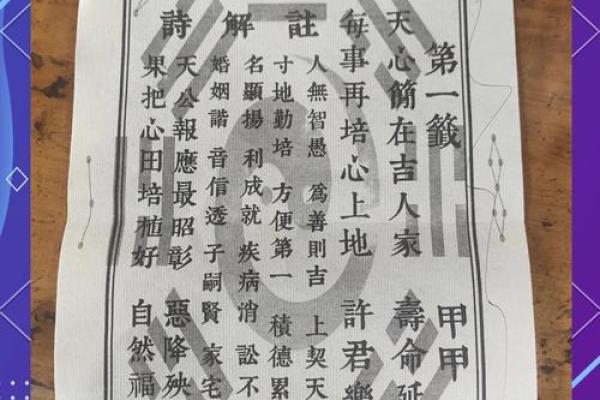 第一籤 甲甲
天心簡在吉人家 壽命延
每事再培心上地 許君樂
註
人無智愚 爲善則吉 上契天
寸地勤培 方便第一 積德累
解
名顯揚 利成就 疾病消 訟不
婚姻諧 音信透 子嗣賢 家宅
詩
天公報應最昭彰 惡降殃
果把心田培植好 自然福